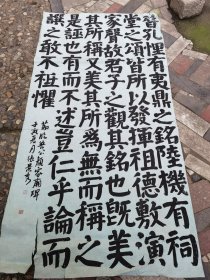 昔孔悝有夷鼎之銘陸機有祠
堂之頌皆所以發揮祖德敷演
家聲故君子之觀其銘也既美
其所稱又美其所為無而稱之
是誣也有而不述豈仁乎論而
譔之敢不祗懼
魯公顏家廟碑